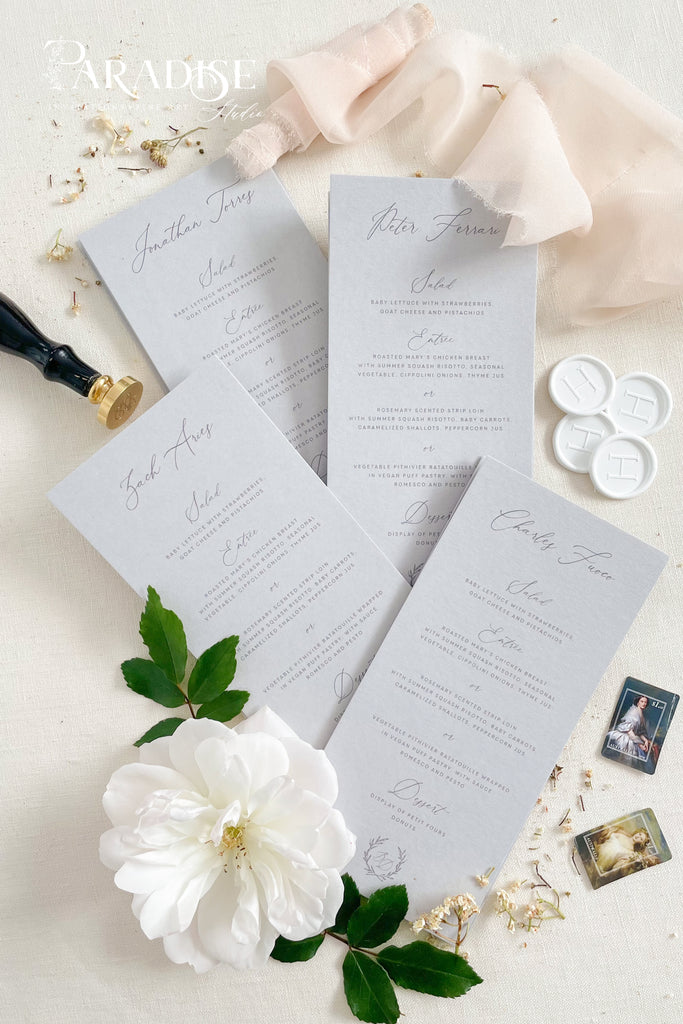 PARADISE
Studio
Jonathan Torres
Salad
BABY LETTUCE WITH STRAWBERRIES,
GOAT CHEESE AND PISTACHIOS
Entrée
ROASTED MARY'S CHICKEN BREAST
WITH SUMMER SQUASH RISOTTO, SEASONAL
VEGETABLE, CIPPOLINI ONIONS, THYME JUS
or
ROSEMARY SCENTED STRIP LOIN
WITH SUMMER SQUASH RISOTTO, BABY
CARAMELIZED SHALLOTS,
or
Peter Ferrari
Salad
BABY LETTUCE WITH STRAWBERRIES,
GOAT CHEESE AND PISTACHIOS
Entrée
ROASTED MARY'S CHICKEN BREAST
WITH SUMMER SQUASH RISOTTO, SEASONAL
VEGETABLE, CIPPOLINI ONIONS, THYME JUS
or
ROSEMARY SCENTED STRIP LOIN
WITH SUMMER SQUASH RISOTTO, BABY CARROTS,
CARAMELIZED SHALLOTS, PEPPERCORN JUS
or
VEGETABLE PITHIVIER RATATOUILLE
IN VEGAN PUFF PASTRY, WITH
ROMESCO AND PESTO
Dessert
DISPLAY OF
Zach Aries
Salad
BABY LETTUCE WITH STRAWBERRIES,
GOAT CHEESE AND PISTACHIOS
Entrée
ROASTED MARY'S CHICKEN BREAST
WITH SUMMER SQUASH RISOTTO, SEASONAL
VEGETABLE, CIPPOLINI ONIONS, THYME JUS
or
ROSEMARY SCENTED STRIP LOIN
WITH SUMMER SQUASH RISOTTO, BABY CARROTS,
CARAMELIZED SHALLOTS, PEPPERCORN JUS
or
VEGETABLE PITHIVIER RATATOUILLE WRAPPED
IN VEGAN PUFF PASTRY, WITH SAUCE
ROMESCO AND PESTO
Charles Fuoco
Salad
BABY LETTUCE WITH STRAWBERRIES,
GOAT CHEESE AND PISTACHIOS
Entrée
ROASTED MARY'S CHICKEN BREAST
WITH SUMMER SQUASH RISOTTO, SEASONAL
VEGETABLE, CIPPOLINI ONIONS, THYME JUS
or
ROSEMARY SCENTED STRIP LOIN
WITH SUMMER SQUASH RISOTTO, BABY CARROTS,
CARAMELIZED SHALLOTS, PEPPERCORN JUS
or
VEGETABLE PITHIVIER RATATOUILLE WRAPPED
IN VEGAN PUFF PASTRY, WITH SAUCE
ROMESCO AND PESTO
Dessert
DISPLAY OF PETIT FOURS
DONUTS
H
H
H
H